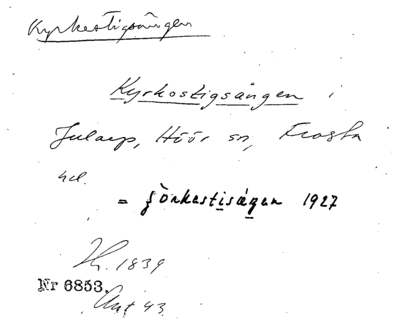 Kyrkestigsängen
Kyrkostigsången i
Julaep, Höör sn, Frosta
hd.
= Jörkestisägen 1927
H. 1839
Nr 6853.
Ant 43.